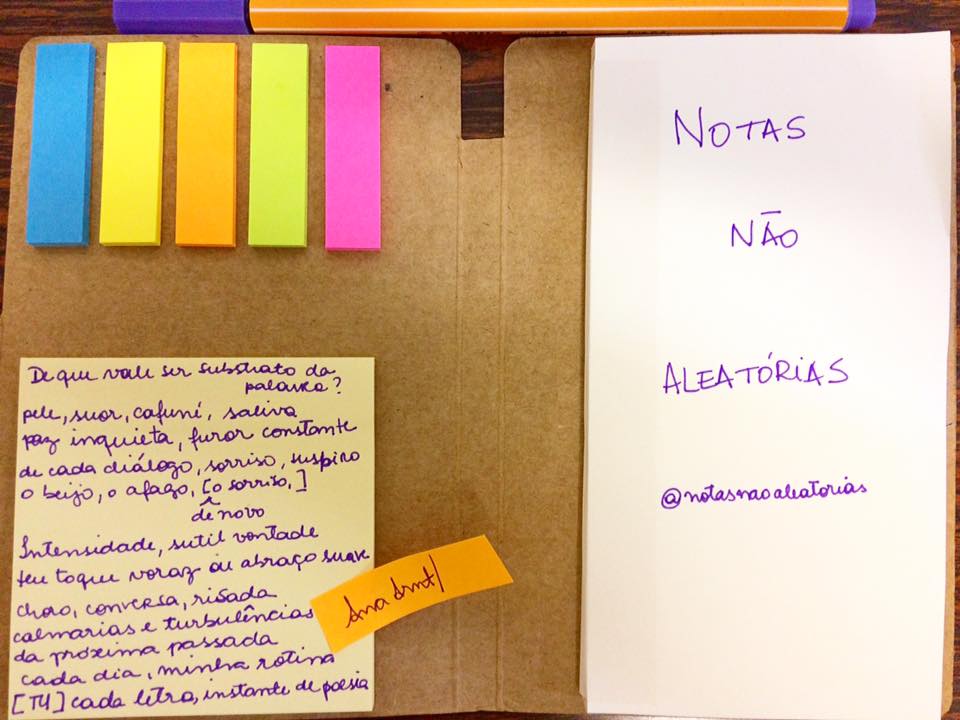 De que vale ser substrato da
palavra?
pele, suor, cafuné, saliva
paz inquieta, furor constante
de cada diálogo, sorriso, suspiro
o beijo, o afago, [o sorriso,]
de novo
Intensidade, sutil vontade
teu toque voraz ou abraço suave
choro, conversa, risada
calmarias e turbulências
da próxima passada
cada dia, minha rotina
[TU] cada letra, instante de poesia
Ana
NOTAS
NÃO
ALEATÓRIAS
@notasnaoaleatorias